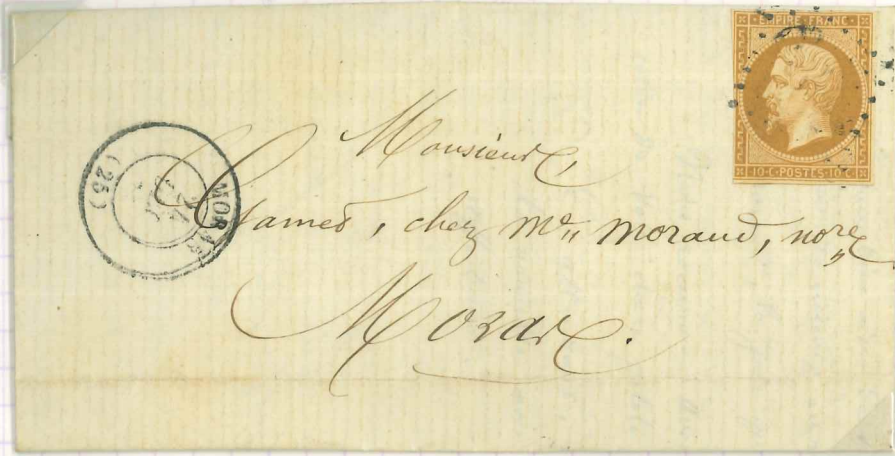 EMPIRE FRANC
10·C·POSTES·10·C
Monsieur,
James, chez Me. Morand, nore.
Mozac.
24
(25)